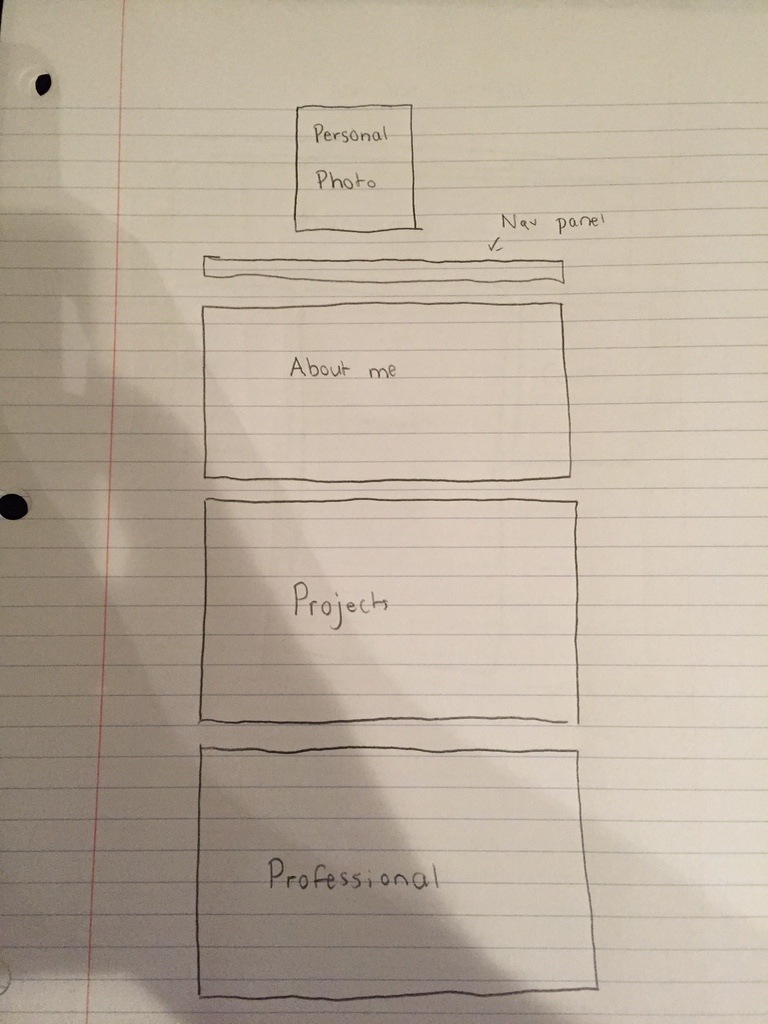 Personal
Photo
Nav panel
About me
Projects
Professional